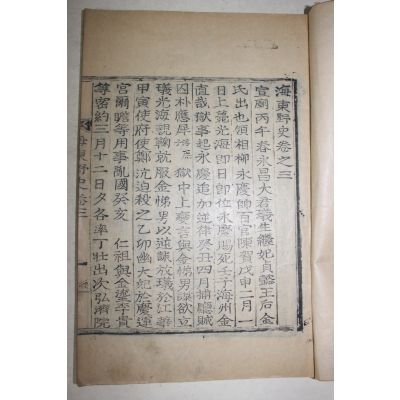 海東野史卷之三
宣廟丙午春永昌大君㼁生繼妃貞懿王后金
氏出也領相柳永慶帥百官陳賀戊申二月一
日上薨光海即日即位永慶賜死壬子海州金
直哉獄事起永慶追加逆律癸丑四月捕廳賊
囚朴應犀 獄中上變言與金悌男謀欲立
㼁光海親鞫就服金悌男以逆誅放㼁於江華
甲寅使府使鄭沆迫殺之乙卯幽大妃於慶運
宮爾瞻等用事亂國癸亥 仁祖與金瑬李貴
等密約三月十二日夕各率丁壯出次弘濟院
海東野史卷三
一